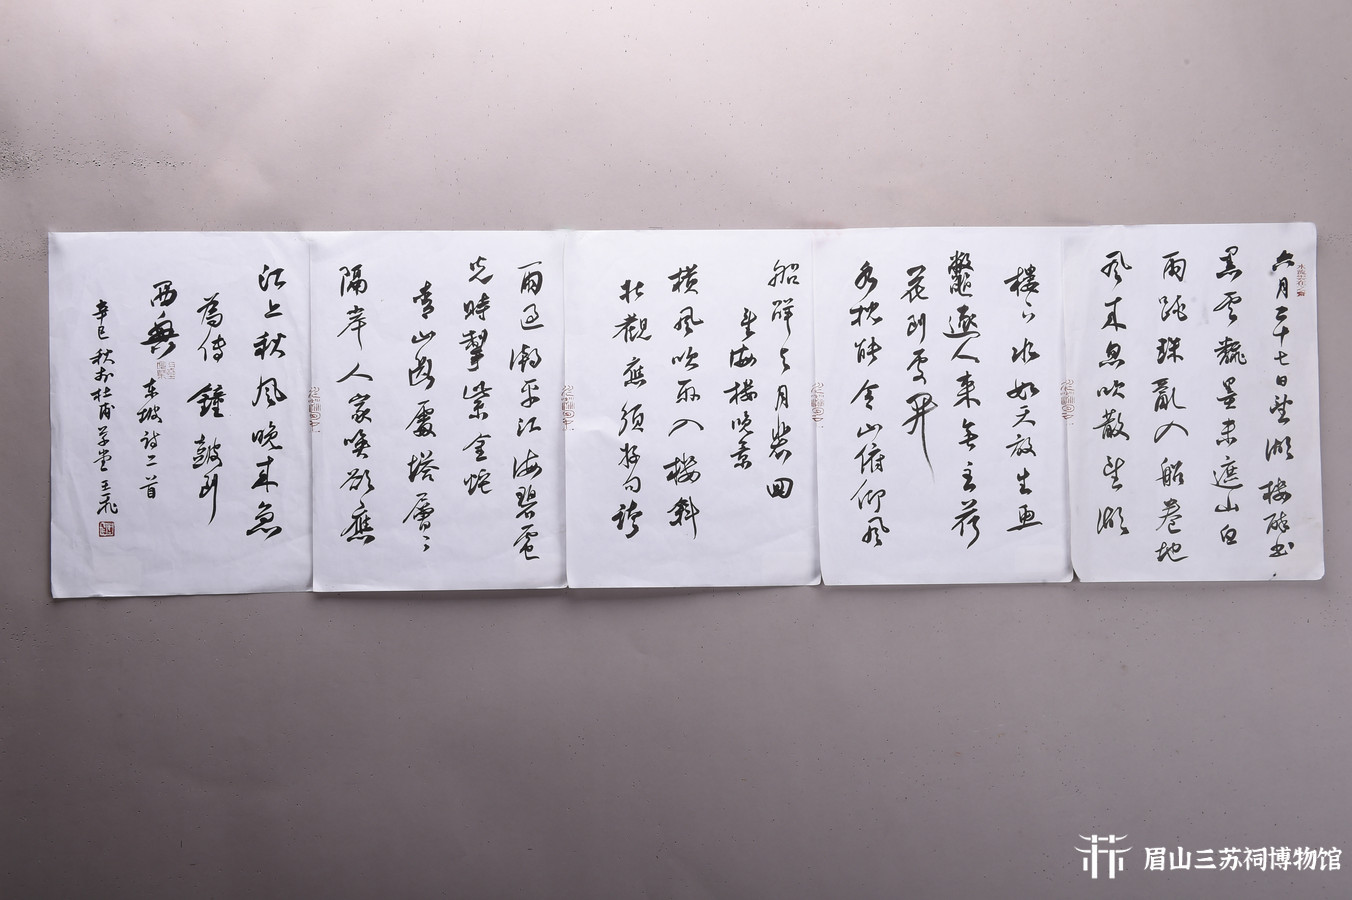 六月二十七日望湖楼醉书
黑云翻墨未遮山白
雨跳珠亂入船卷地
风来忽吹散望湖
楼下水如天放生鱼
鱉逐人来無主荷
花到處開
水枕能令山俯仰风
船解与月裴回
望海楼晚景
横风吹雨入楼斜
壮觀應须好句誇
雨過潮平江海碧電
光時掣紫金蛇
青山断處塔層々
隔岸人家唤欲應
江上秋风晚来急
為傳鐘鼓到
西興
东坡诗二首
辛巳秋於杜甫草堂王飛
眉山三苏祠博物馆